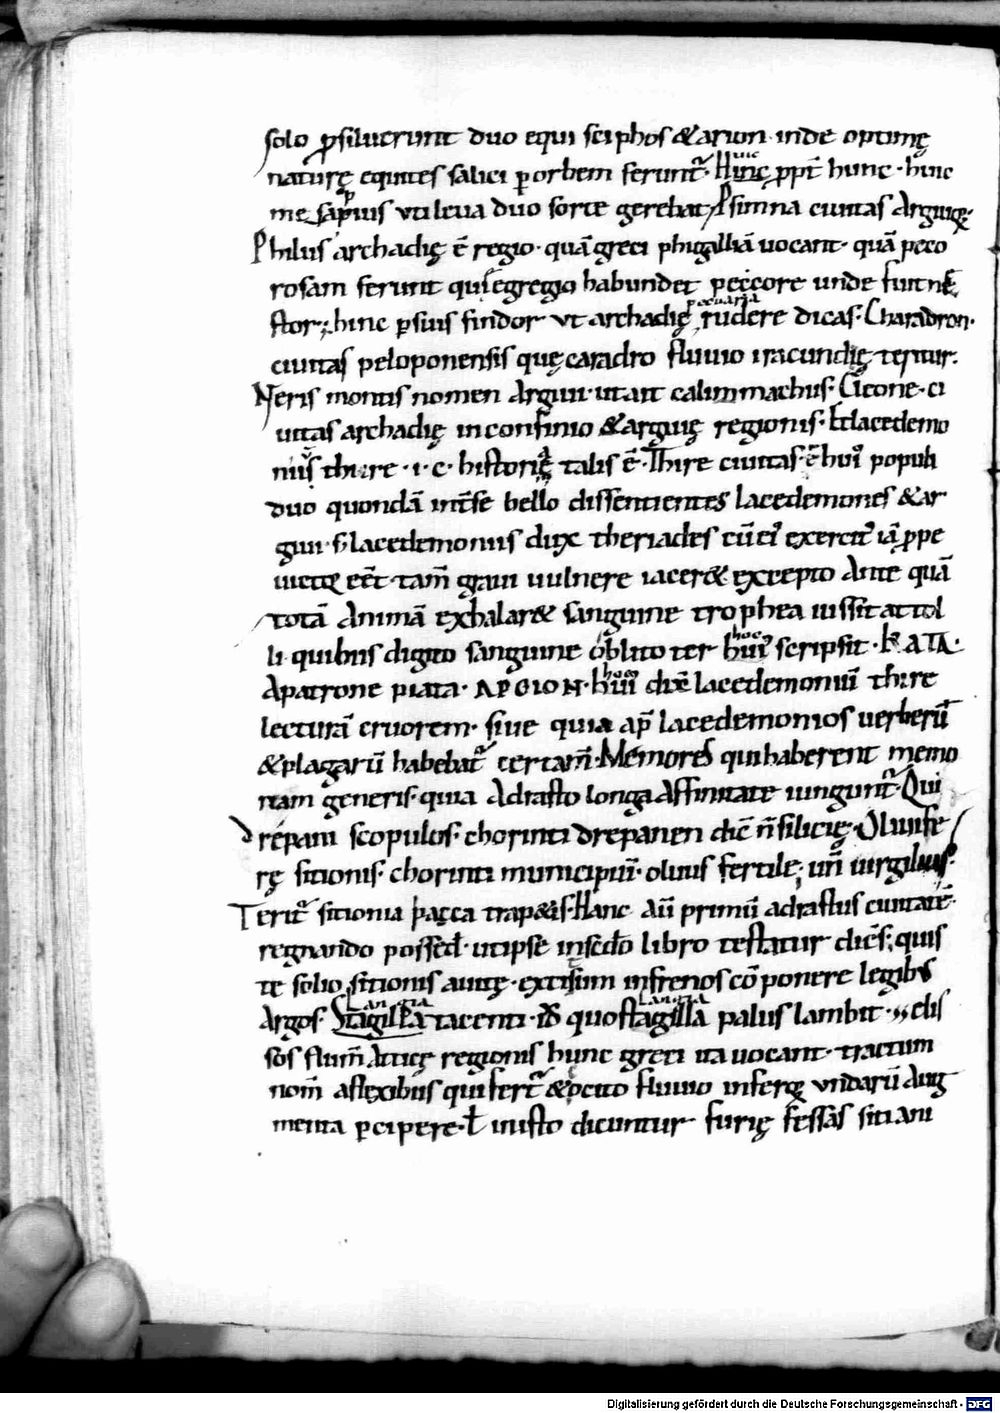 solo ꝓsiluerunt duo equi sciphos & arion. inde optimę
naturę equites salici ꝑ orbem ferunt᷑. Hinc ꝓpt̄ hunc. hinc
me sapius uti leua duo sorte gerebat / Psimna ciuitas Arguię.
Philus archadię ē regio. quā greci phigalliā uocant. quā peco
rosam ferunt qui segregio habundet peccore unde fuit nē
stor; hinc ꝑsius findor ut archadię rudere dicas. Charadron.
pecuaria
ciuitas peloponensis quę caradro fluuio iracundię teritur.
Neris montis nomen Arguii. ut ait calimmachus. Cleone. ci
uitas archadię in confinio & arguię regionis. Et lacedemo
nius thire .i.e. historię talis ē. Thire ciuitas. ē hui' populi
duo quondā int̄ se bello dissentientes lacedemones & ar
giui. s; lacedemonius dux theriades cū ei' exercit' iā ꝓpe
uictꝗ eēt tam̄ graui uulnere iacer& excepto Ante quā
totā Animā exhalar& sanguine trophea iussit attol
li. quibus digito sanguine oblito ter hui' scripsit. KATA.
hoc
A patrone piata. ΑΡΓΙΟΝ. hui' dux̄ lacedemoniū thire
lecturā cruorem. siue quia ap̄ lacedemonios uerberū
& plagarū habebat᷑ certam̄. Memores qui haberent memo
riam generis. quia Adrasto longa Affinitate iungunt᷑. Qui
drepani scopulos. chorinti drepanen dic̄ n̄ silicię. Oliuife
rę sitionis. chorinti municipiū. oliuis fertile; un̄ uirgilius.
Terit᷑ sitionia bacca trap&is. Hanc Aū primū adrastus ciuitatē.
regnando possed̄. ut ipse insed̄o libro testatur dicēs; quis
te solio sitionis auitę. excisum infrenos cōponere legibus
Argos. Stagilla tacenti. id̄ quo stagilla palus lambit. ,, elis
langia langia
sos flum̄ Atticę regionis hunc greci ita uocant. tractum
nom̄ aflexibus qui fert᷑ & ocito fluuio inferꝗ undarū Aug
menta ꝑcipere. ł iniusto dicuntur furię fessas sitiani